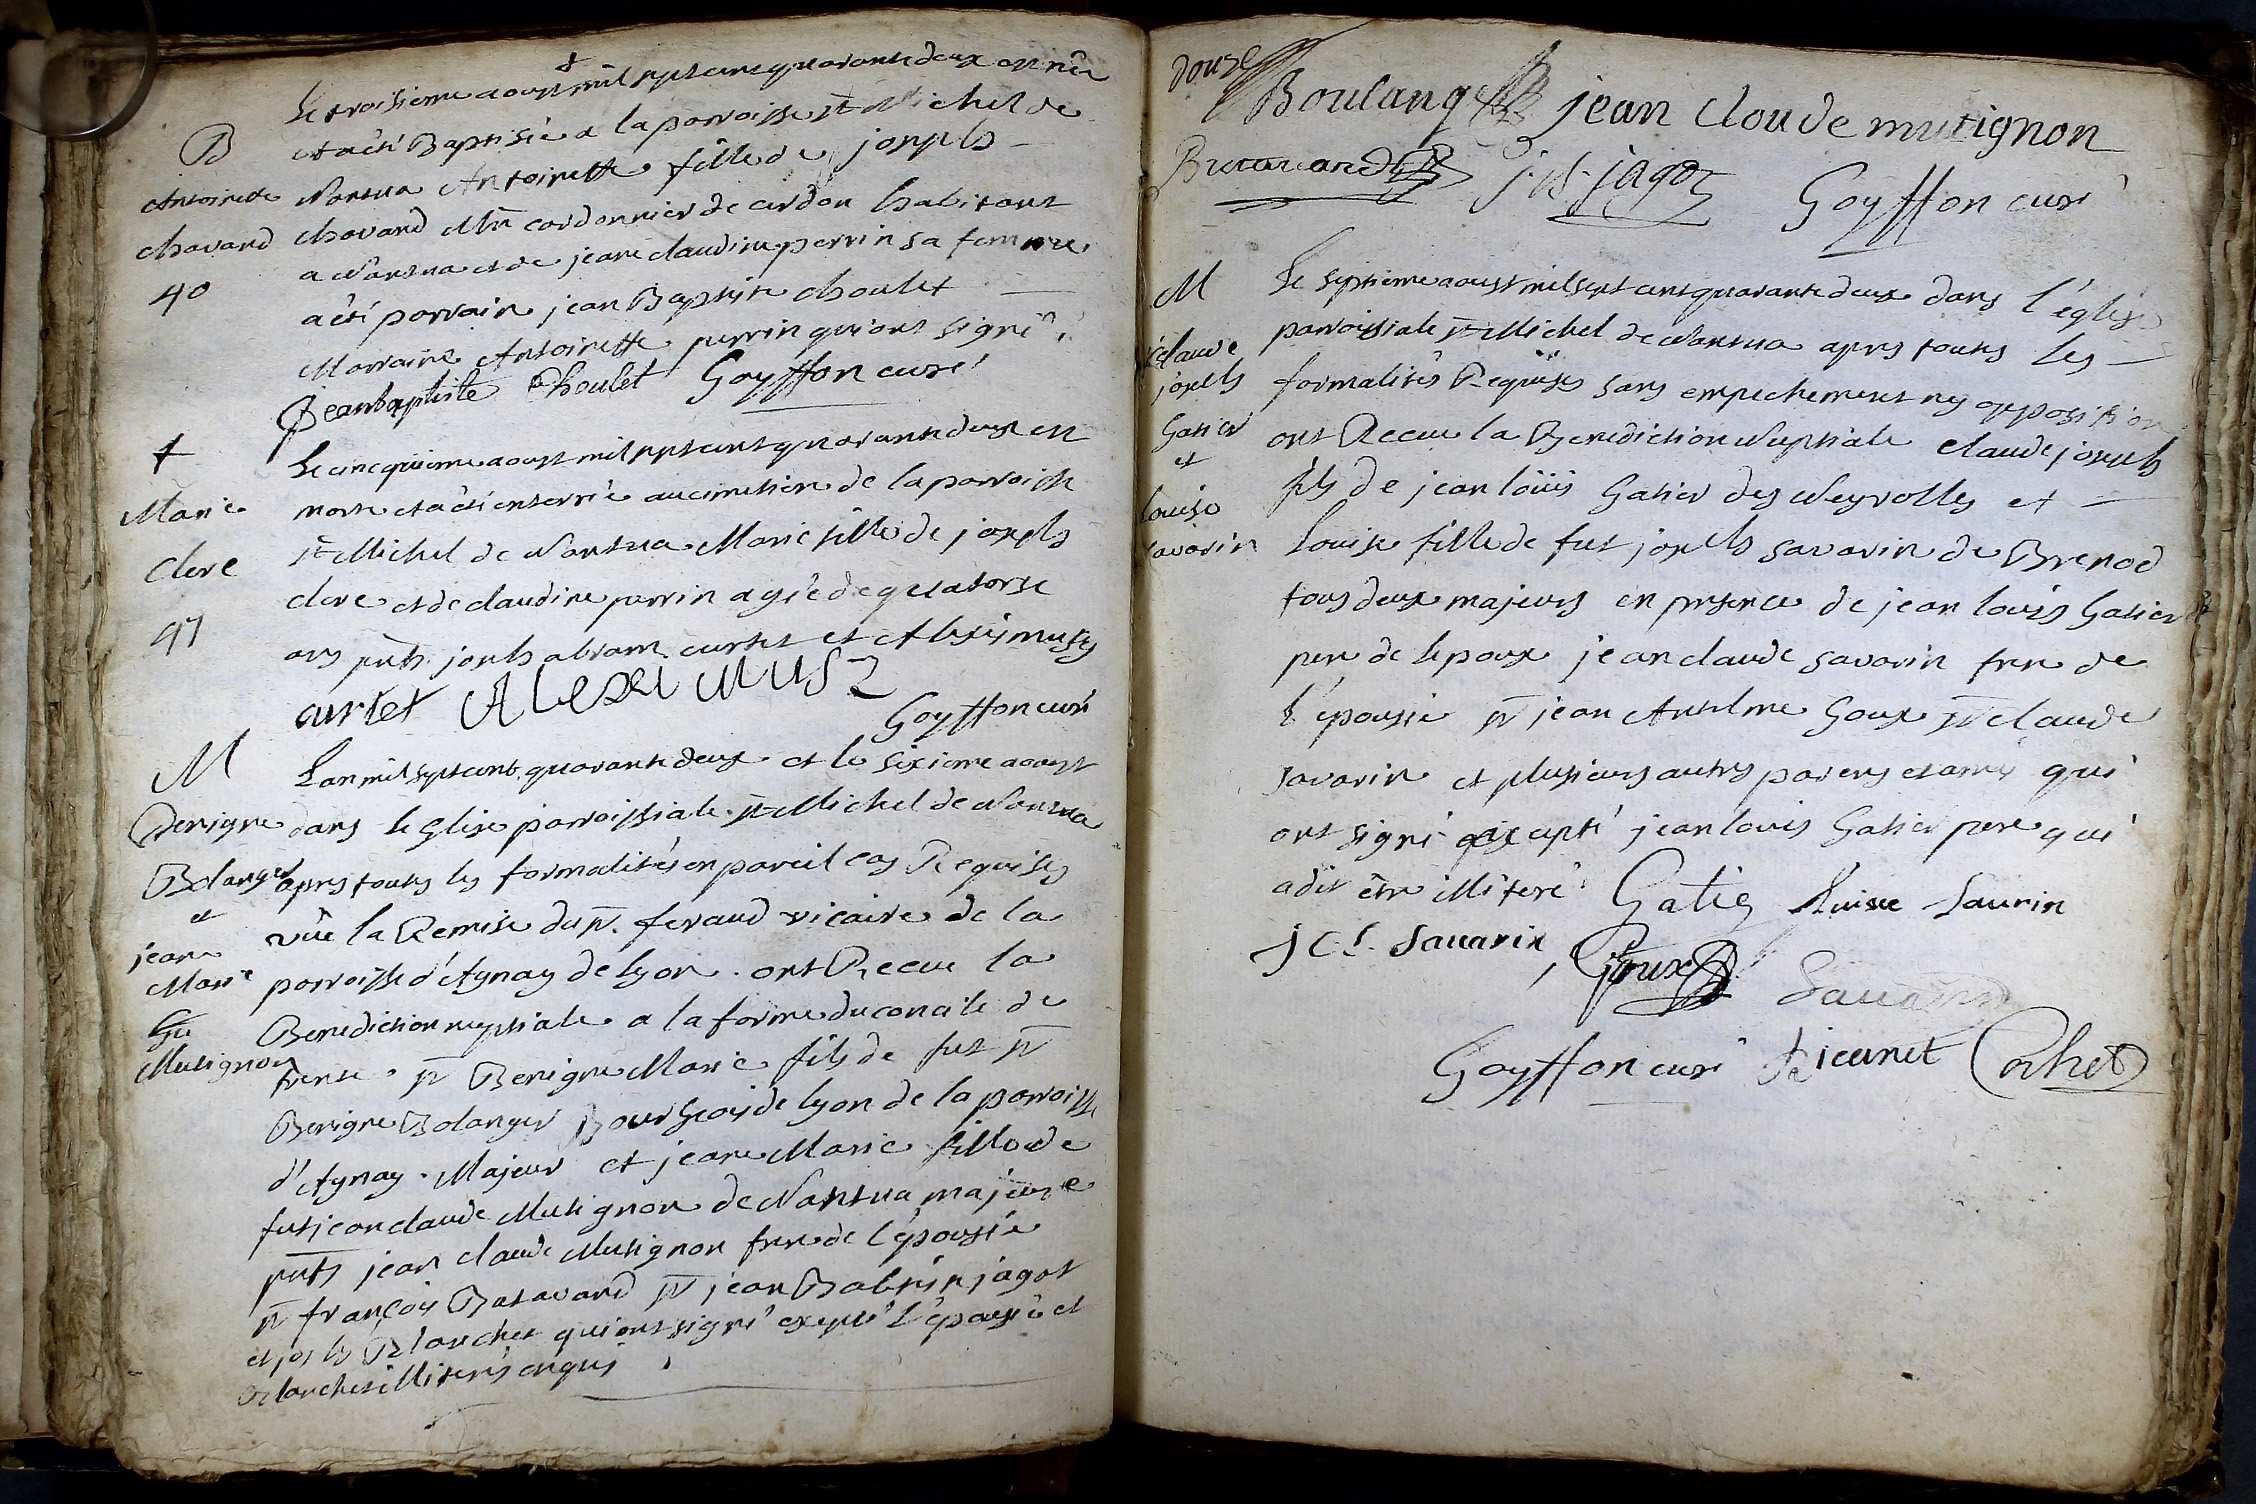 B
Antoinette
chavand
40
Le troisieme aoust mil sept cent quarante deux est née
et a été Baptisée a la parroisse st Michel de
Nantua Antoinette fille de joseph
chavand Mre cordonnier de cerdon habitant
a Nantua et de jeane claudine perrin sa femme
a été parrain jean Baptiste choulet
Marraine Antoinette perrin qui ont signé
Jean baptiste Choulet Goyffon curé
†
Marie
Clere
41
Le cinquieme aoust mil sept cent quarante deux est
morte et a été enterrée au cimetiere de la parroisse
st Michel de Nantua Marie fille de joseph
clere et de claudine perrin agée de quatorse
ans pnts joseph abram curtet et Alexis musy
curtet Alexi Musy
Goyffon curé
M
Benigne
Bolanger
et
jeane
Marie
Mutignon
L'an mil sept cent quarante deux et le sixieme aoust
dans leglise parroissiale st Michel de Nantua
apres toutes les formalités en pareil cas Requises
vûe la Remise du sr. feraud vicaire de la
parroisse d'Aynay de lyon ont Receu la
Benediction nuptiale a la forme du concile de
trente sr Benigne Marie fils de fut sr
Benigne Bolanger Bourgeois de lyon de la parroisse
d'Aynay Majeur et jeane Marie fille de
fut jean claude Mutignon de Nantua majeure
pnts jean claude Mutignon frere de l'épousée
sr françois Batavard sr jean Babtiste jagot
et joseph Blanchet qui ont signé excepté l'épousée et
Blanchet illiterés enquis
douse
Boulanger jean cloude mutignon
j. b. jagot Goyffon curé
M
claude
joseph
Gatier
et
louise
savarin
Le septieme aoust mil sept cent quarante deux dans l'église
parroissiale st Michel de Nantua apres toutes les
formalités Requises sans empechement ny opposition
ont Receu la Benediction Nuptiale claude joseph
fils de jean loüis Gatier des Neyrolles et
Louise fille de fut joseph savarin de Brenod
tous deux majeurs en presence de jean louis Gatier
pere de lepoux jean claude savarin frere de
l'épousée sr jean Anselme Goux sr claude
savarin et plusieurs autres parens et amis qui
ont signé excepté jean louis Gatier pere qui
a dit être illiteré Gatie Luisse Savrin
j c l Sauarin Goux Sauarin
Goyffon curé jeanet Cochet